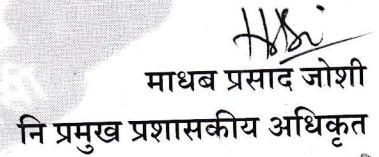 माधब प्रसाद जोशी
नि प्रमुख प्रशासकीय अधिकृत